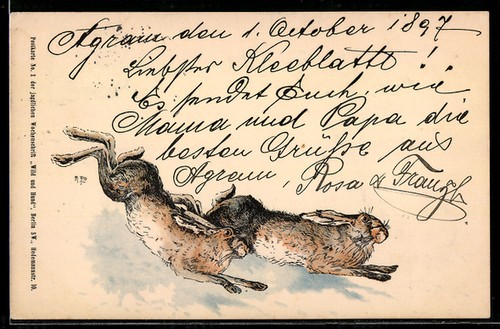 Agram den 1. October 1897
Liebster Kleeblatt!
Es sendet Euch, wie
Mama und Papa die
besten Grüße aus
Agram, Rosa &
Postkarte No. 1 der jagdlichen Wochenschrift „Wild und Hund“, Berlin SW., Hedemannstr. 10.